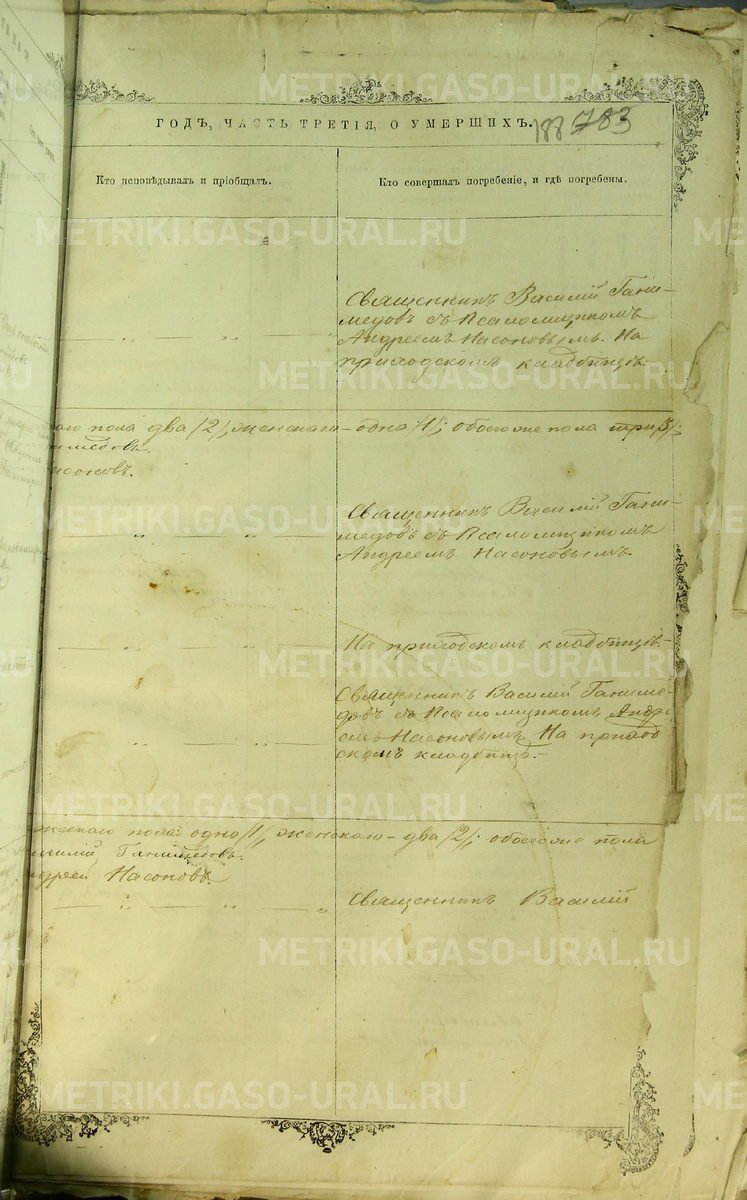 ГОДЪ, ЧАСТЬ ТРЕТІЯ, О УМЕРШИХЪ.
188 783
Кто исповѣдывалъ и пріобщалъ.
Кто совершалъ погребеніе, и гдѣ погребены.
Священникъ Василій Гани-
медовъ съ Псаломщикомъ
Андреемъ Насоновымъ. На
приходскомъ кладбищѣ.
пола два /2/, женскаго - одно /1/; обоего же пола три /3/;
имедовъ.
асоновъ.
Священникъ Василій Гани-
медовъ съ Псаломщикомъ
Андреемъ Насоновымъ
На приходскомъ кладбищѣ.
Священникъ Василій Ганиме-
довъ съ Псаломщикомъ Андре
емъ Насоновымъ. На приход
скомъ кладбищѣ.-
жескаго пола: одно /1/, женскаго - два /2/; обоего же пола
силій Ганимедовъ.
ндрей Насоновъ.
Священникъ Василій
METRIKI.GASO-URAL.RU